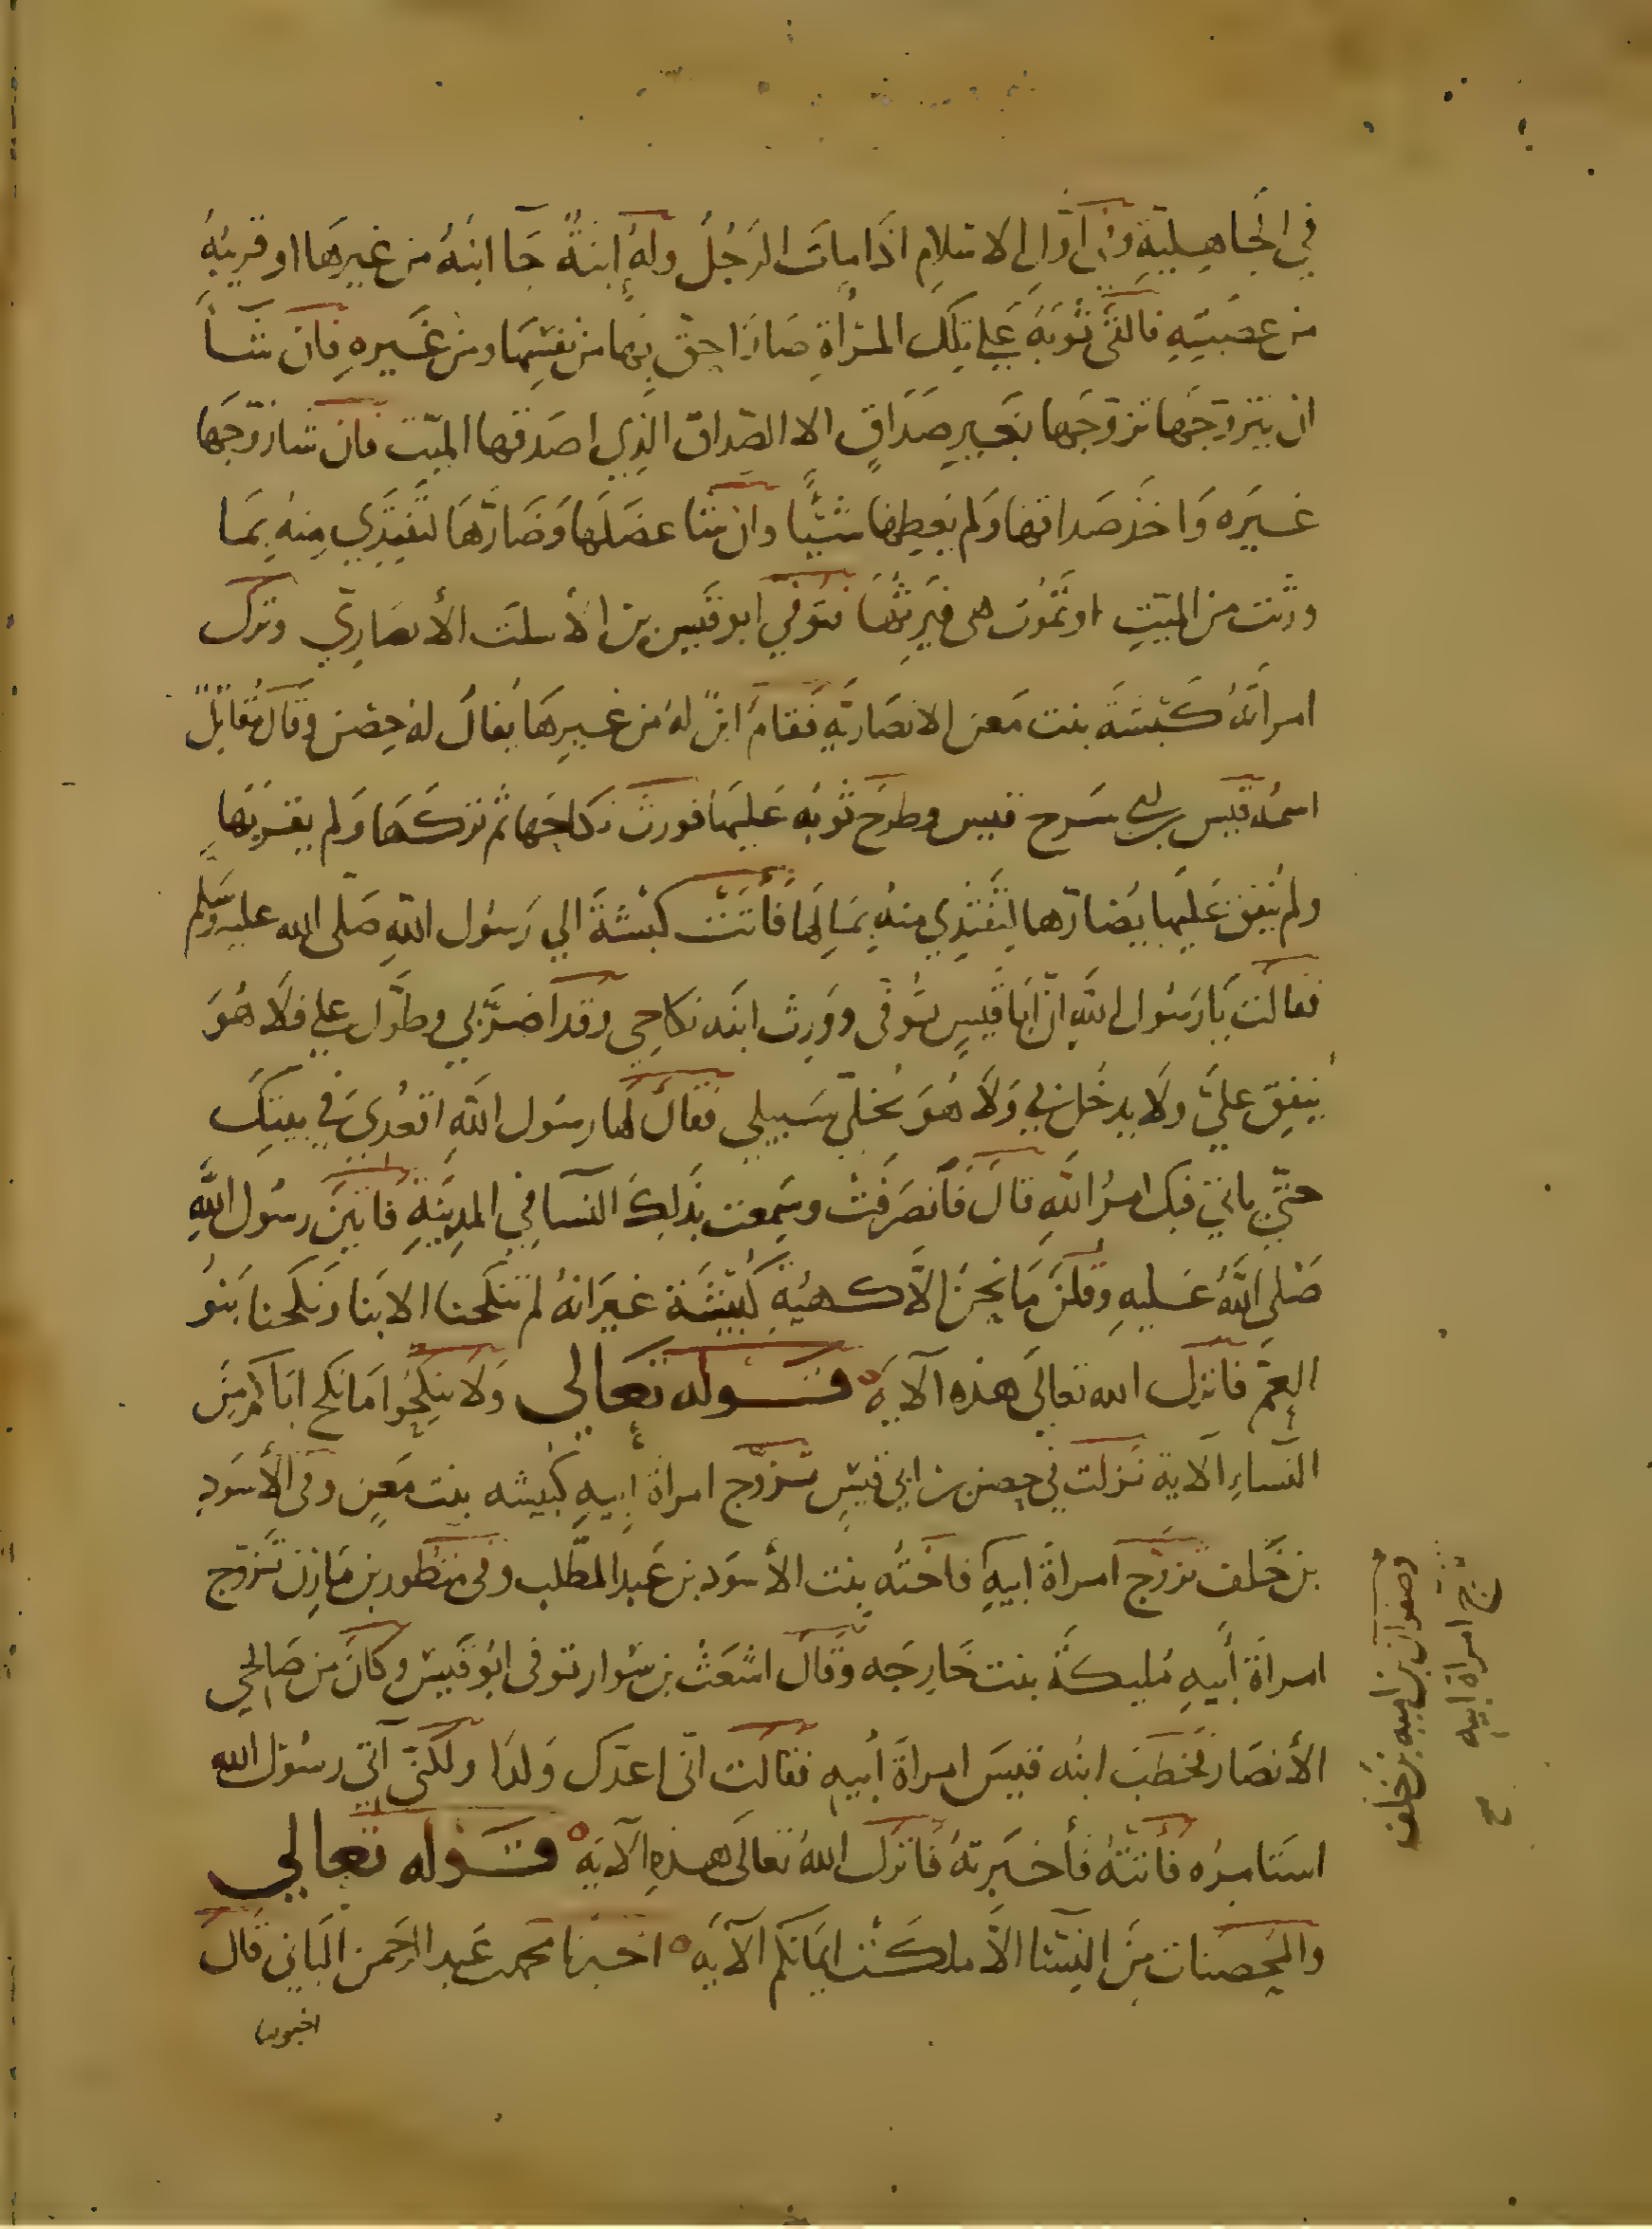 في الجاهلية وفي أول الاسلام اذا مات الرجل وله ابنة جا ابنه من غيرها او قريبه
من عصبته فالقى ثوبه على تلك المرأة صار احق بها من نفسها ومن غيره فان شأ
ان يتزوجها تزوجها بغير صداق الا الصداق الذي اصدقها الميت فان شا زوجها
غيره واخذ صداقها ولم يعطها شيًا وان شا عضلها وضارها لتفتدي منه بما
ورثت من الميت او تموت هى فيرثها فتوفي ابو قيس بن الأسلت الأنصاري وترك
امراته كبشة بنت معن الانصارية فقام ابن له من غيرها يقال له حصن وقال مقاتل
اسمه قيس بن ابي سرح قيس وطرح ثوبه عليها فورث نكاحها ثم تركها ولم يقربها
ولم ينفق عليها يضارها لتفتدي منه بمالها فأتت كبشة الي رسول الله صلى الله عليه وسلم
فقالت يا رسول الله ان ابا قيس توفى وورث ابنه نكاحي وقد اضربي وطول علي فلا هو
ينفق علي ولا يدخل بي ولا هو يخلي سبيلي فقال لها رسول الله اقعدي في بيتك
حتي ياتي فيك امر الله قال فأنصرفت وسمعت بذلك النسآ في المدينة فاتين رسول الله
صلى الله عليه وقلن ما نحن الا كهيئة كبيشة غير انه لم تنكحنا الابنا ونكحنا بنو
العم فانزل الله تعالى هذه الاية قوله تعالي ولا تنكحوا ما نكح اباكم من
النساء الاية نزلت في حصن بن ابي قيس تزوج امراة أبيه كبيشه بنت معن وفى الأسود
بن خلف تزوج امراة ابيه فاخته بنت الأسود بن عبد المطلب وفى منظور بن مازن تزوج
امراة أبيه مليكة بنت خارجه وقال اشعث بن سوار توفى ابو قيس وكان من صالحي
الأنصار فخطب ابنه قيس امراة أبيه فقالت انى اعدك ولدا ولكنى آتى رسول الله
استامره فأتته فأخبرته فأنزل الله تعالى هذه الآية قوله تعالي
والمحصنات من النسا الا ملكت ايمانكم الآية اخبرنا محمد بن عبد الرحمن البناني قال
اخبرنا
وصفوان بن اميه بن خلف
تزوج امراة ابيه
صح